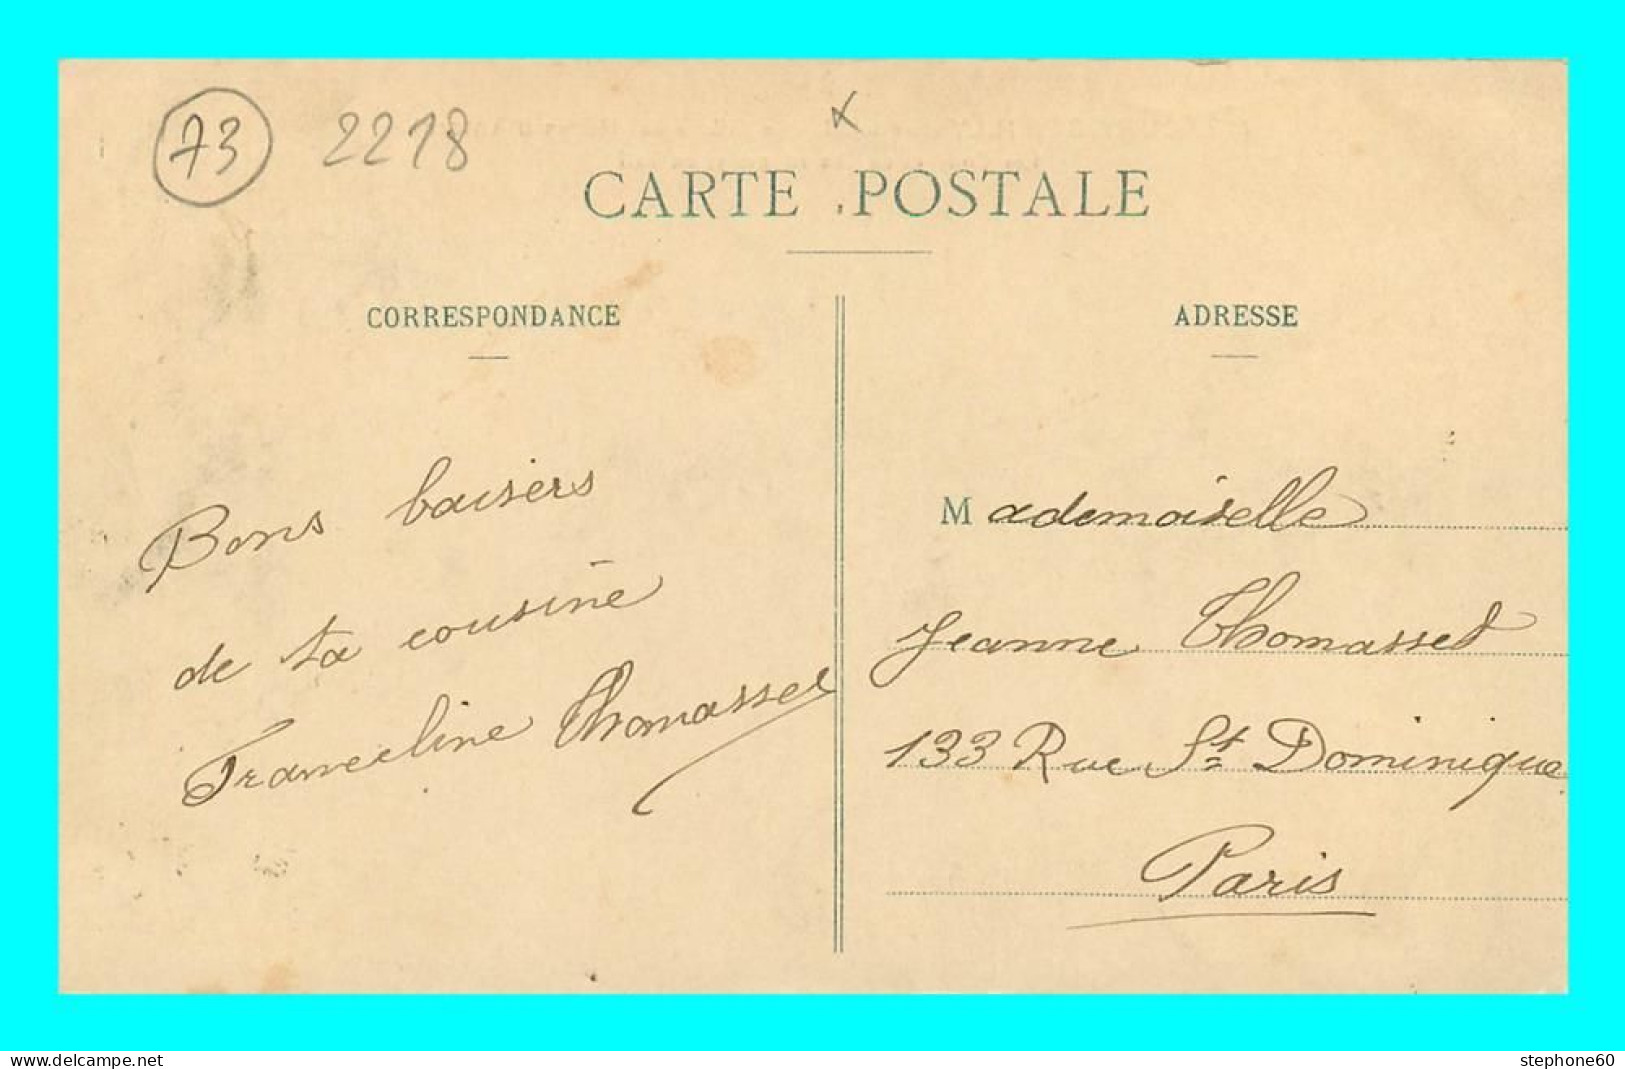 73 2218
CARTE POSTALE
CORRESPONDANCE
Bons baisers
de ta cousine
Franceline Thomasset
ADRESSE
Mademoiselle
Jeanne Thomasset
133 Rue St Dominique
Paris
www.delcampe.net
stephone60